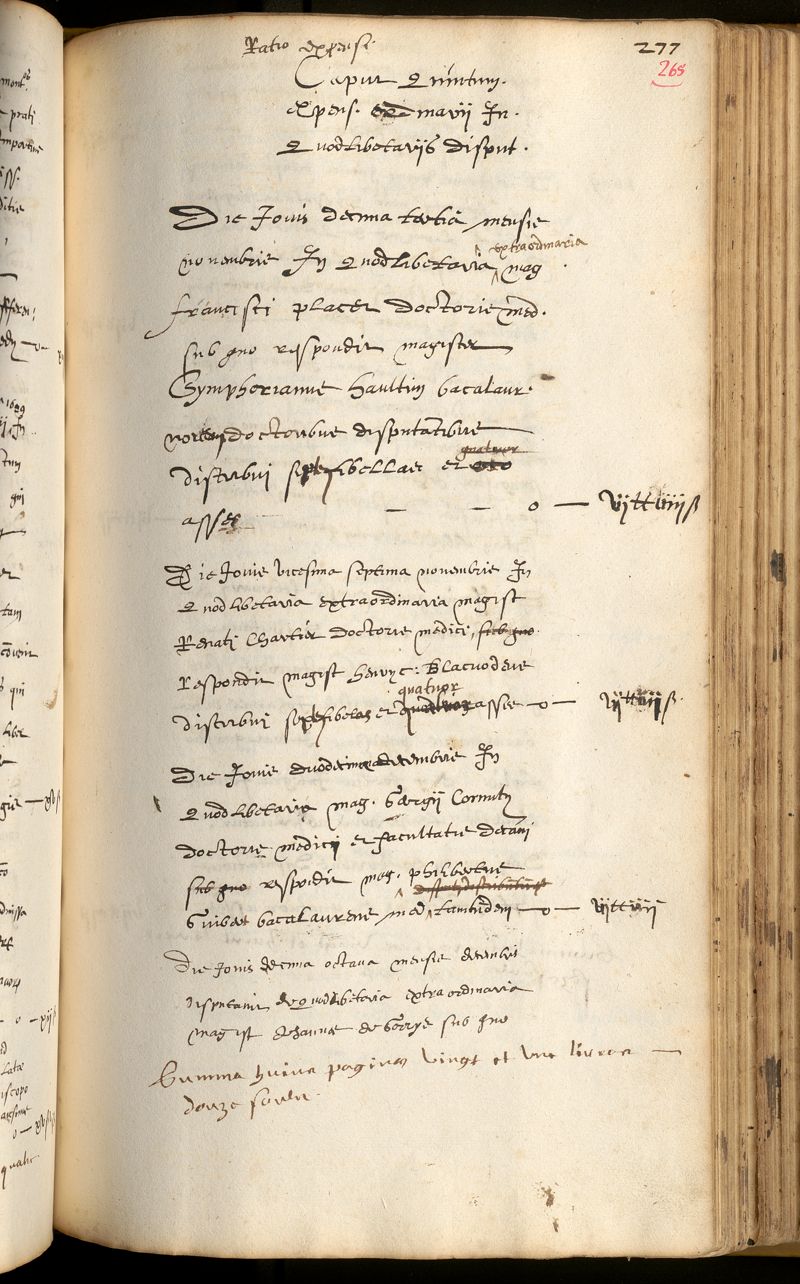 Ratio expensi.
277
265
Caput Quintum.
expens. ordinarij In
Quodlibetariis disput.
Die Jovis decima tertia mensis
novembris In Quodlibetaria extraordinaria mag
francisci placet doctoris med.
sub quo respondit magister
Symphorianus haultin bacalaur.
doctoribus disputantibus
distribui septem libellas et quatuor
asses — — o — vijtt iiijß
Die Jovis vicesima septima novembris In
Quodlibetaria extraordinaria magist
Renati Chartier doctoris medici, sub quo
respondit magist henryc: Blacvodeus
distribui septem libelas et quatuor asses — o — vijtt iiijß.
Die Jovis duodecima decembris In
Quodlibetaria mag. Georgij Cornuty
doctoris medici et facultatis decani
sub quo respondit mag. philibertus
Guibert bacalaureus med tantundem — o — vijtt iiij
Die Jovis decima octava mensis decembris
disputavit de Quodlibetaria extraordinaria
magist Joannes de Gorrys sub quo
Summa huius paginae vingt et une livres —
douze soubz.